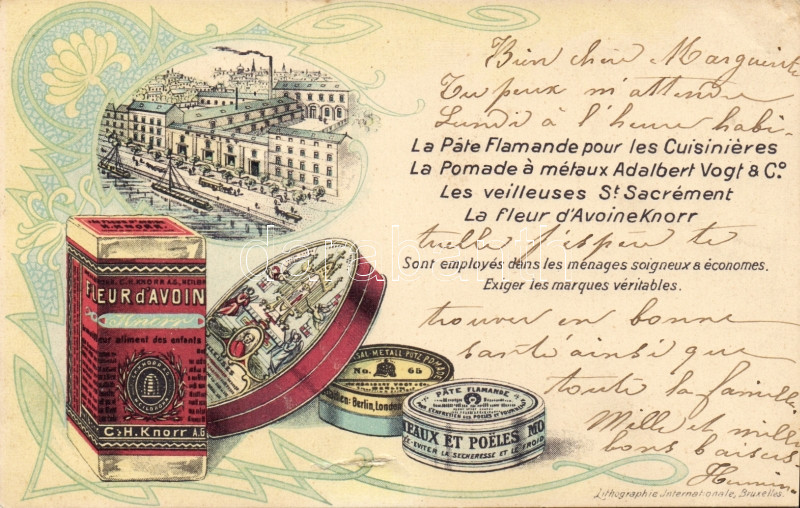 Bien chère Marguerite
Tu peux m'attendre
Lundi à l'heure habi-
La Pâte Flamande pour les Cuisinières
La Pomade à métaux Adalbert Vogt & Co.
Les veilleuses St Sacrément
La fleur d'Avoine Knorr
tuelle j'espère te
Sont employés dans les ménages soigneux & économes.
Exiger les marques véritables.
trouver en bonne
santé ainsi que
toute la famille
Mille et mille
bons baisers
Lithographie Internationale, Bruxelles.
H. KNORR.
FLEUR d'AVOIN
Knorr
ur aliment des enfants
C.H. Knorr A.G.
SAL-METALL-PUTZ-POMAD
No. 65
Berlin, London
PÂTE FLAMANDE
EAUX ET POÊLES MO
ÉVITER LA SÉCHERESSE ET LE FROID
darabanth